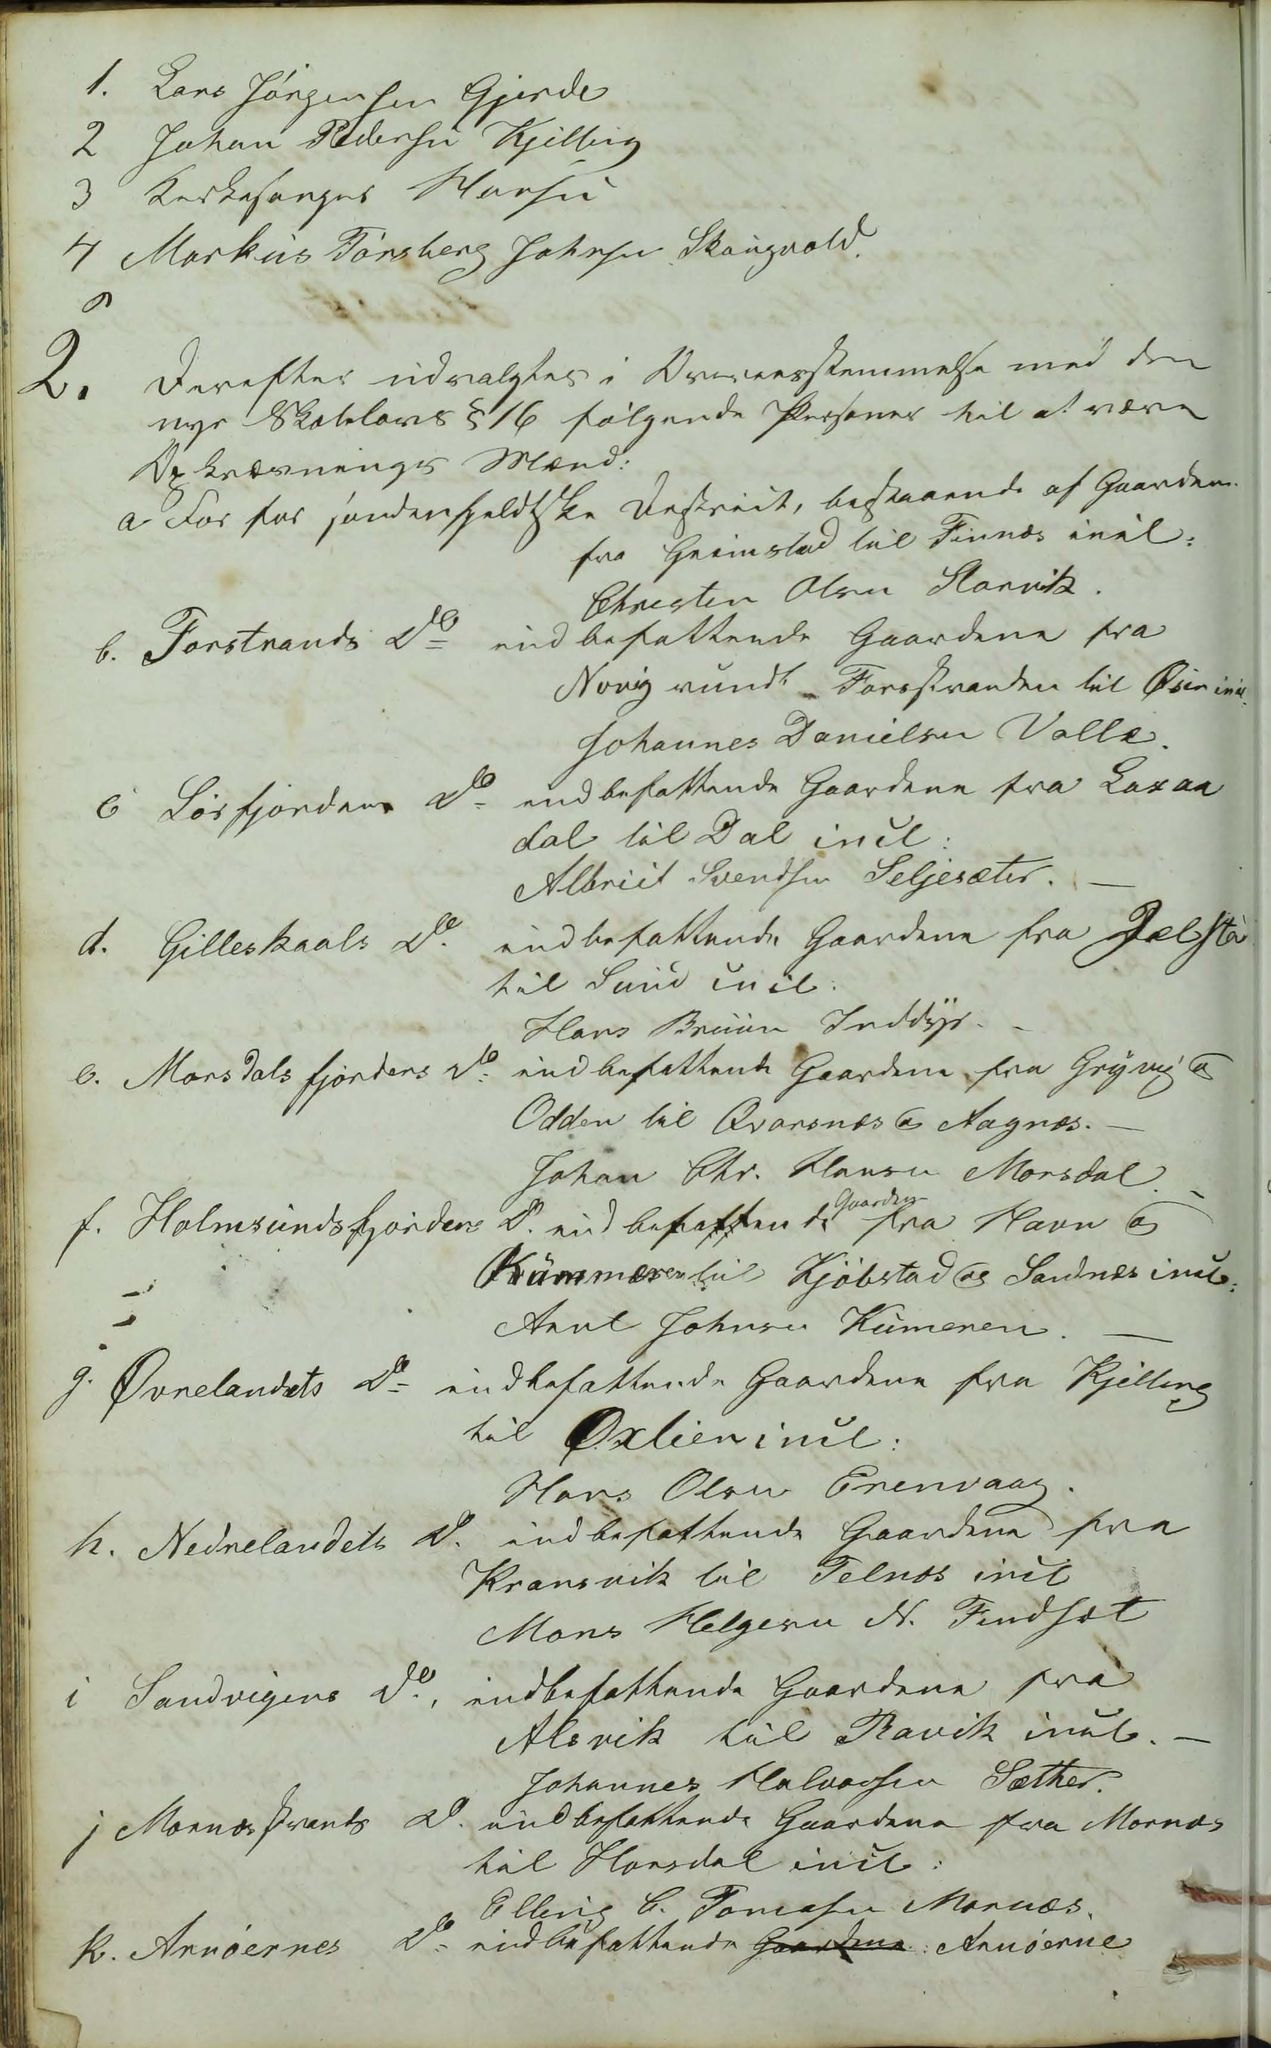 1. Lars Jörgensen Gjerde
2 Johan Pedersen Kjelling
3 Kirkesanger Hansen
4 Markus Törsberg Johnsen Skaugvold.
2. Derefter udvalgtes i Overeensstemmelse med den
nye Skolelovs § 16 fölgende Personer til at være
Opkrævnings Mænd:
a For for söndenfjeldtske District, bestaaende af Gaardene
fra Grimstad til Finnæs incl:
Christen Olsen Storvik.
b. Forstrands Do indbefattende Gaardene fra
Novig rundt Forstranden til Øien incl.
Johannes Danielsen Valle.
c Sörfjordens Do indbefattende Gaardene fra Laxaa
dal til Dal incl:
Albrict Svendsen Seljesæter. —
d. Gilleskaals Do. indbefattende Gaardene fra
til Sund incl.
Hans Bruun Inddyr. -
e. Morsdalsfjordens Do. indbefattende Gaardene fra Gryvig og
Odden til Qvarsnæs og Aagnæs. —
Johan Chr. Hansen Morsdal. -
f. Holmsundsfjordens D. indbefattende Gaardene fra Havn og
Kummeren til Kjöbstad og Sandnæs incl.
Arnt Johnsen Kumeren. —
g. Øvrelandets Do indbefattende Gaardene fra Kjelling
til Øxlien incl:
Hans Olsen Erenvaag.
h. Nedrelandets D. indbefattende Gaardene fra
Kransvik til Telnæs incl
Mons Helgesen N. Findset
i Sandvigens Do., indbefattende Gaardene fra
Alsvik til Ravik incl. —
Johannes Halvorsen Sæther.
j Mornæsstrands D. indbefattende Gaardene fra Mornæs
til Horsdal incl:
Elling C. Tomasen Mornæs.
k. Arnöernes Do indbefattende Gaardene Arnöerne